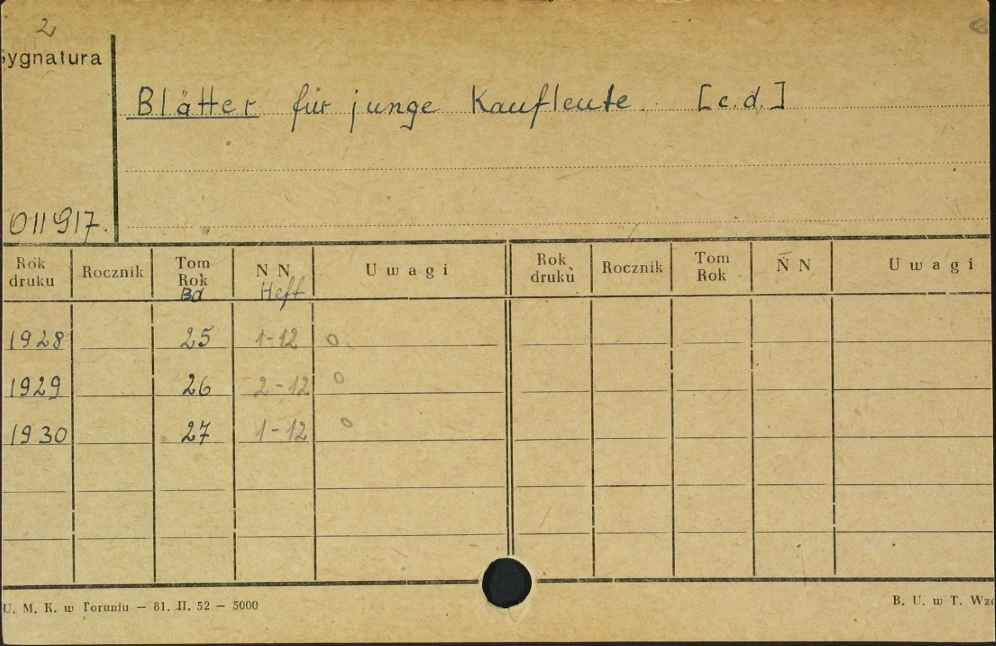 2
Sygnatura
Blätter für junge Kaufleute. [c.d.]
011917.
Rok druku Rocznik Tom Rok Bd N N Heft Uwagi Rok druku Rocznik Tom Rok N N Uwagi
1928 25 1-12 o
1929 26 2-12 o
1930 27 1-12 o
U. M. K. w Toruniu — 81. II. 52 — 5000 B. U. w T.